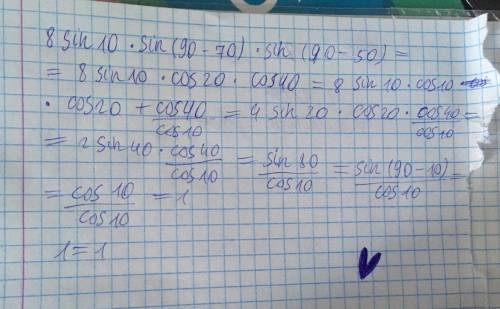 8 sin 10 · sin (90 - 70) · sin (90 - 50) =
= 8 sin 10 · cos 20 · cos 40 = 8 sin 10 · cos 10 ·
· cos 20 + cos 40 / cos 10 = 4 sin 20 · cos 20 · cos 40 / cos 10 =
= 2 sin 40 · cos 40 / cos 10 = sin 80 / cos 10 = sin (90 - 10) / cos 10 =
= cos 10 / cos 10 = 1
1 = 1